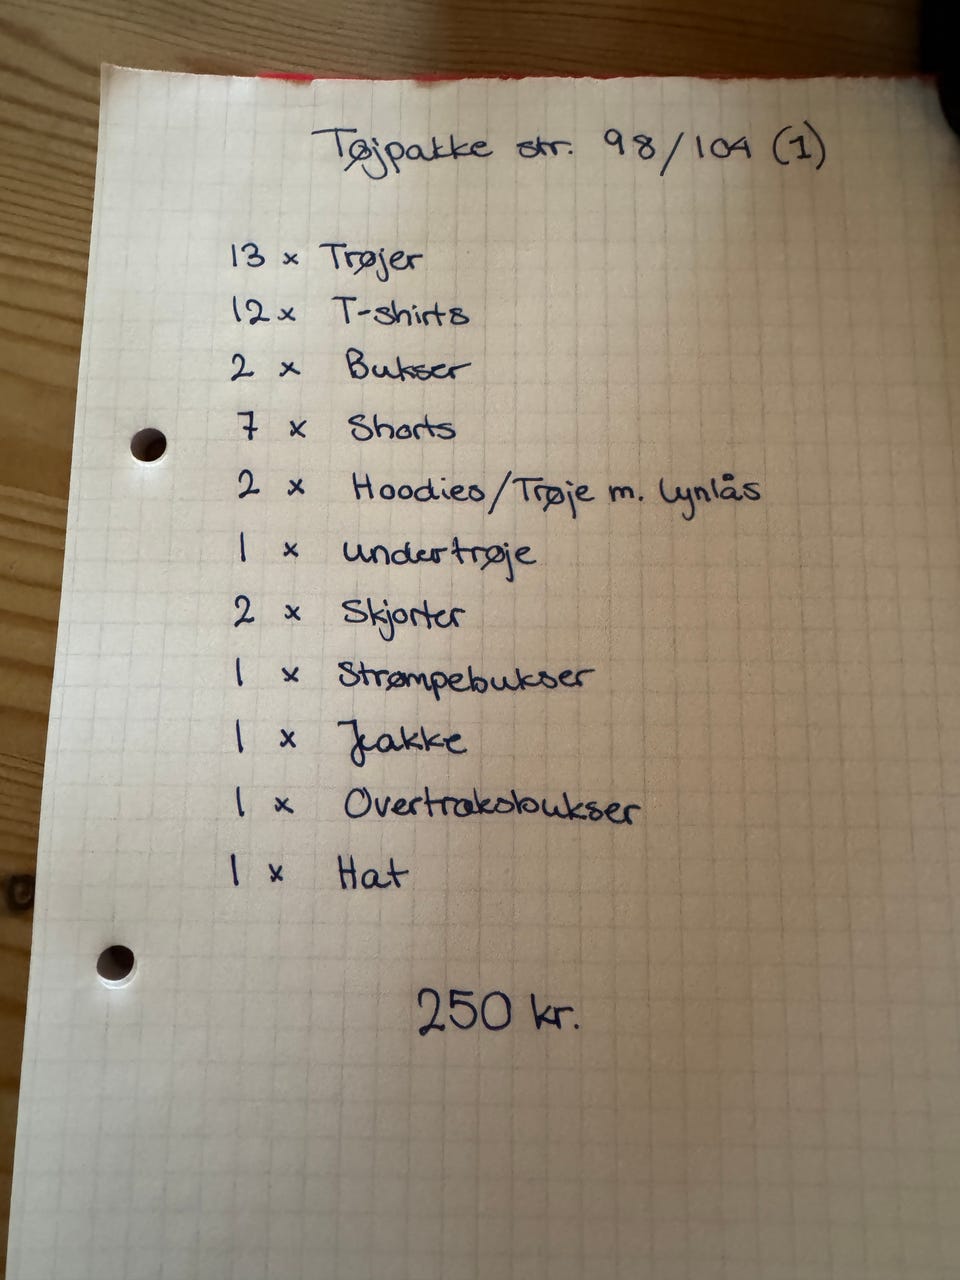 Tøjpakke str. 98/104 (1)
13 x Trøjer
12 x T-shirts
2 x Bukser
7 x Shorts
2 x Hoodies/Trøje m. Lynlås
1 x undertrøje
2 x Skjorter
1 x Strømpebukser
1 x Jakke
1 x Overtræksbukser
1 x Hat
250 kr.